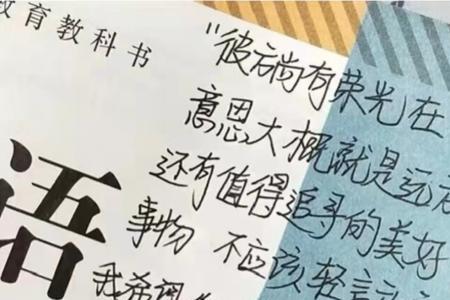 教育教科书
语
"彼方尚有荣光在
意思大概就是远方
还有值得追寻的美好
事物 不应该轻言
我希望